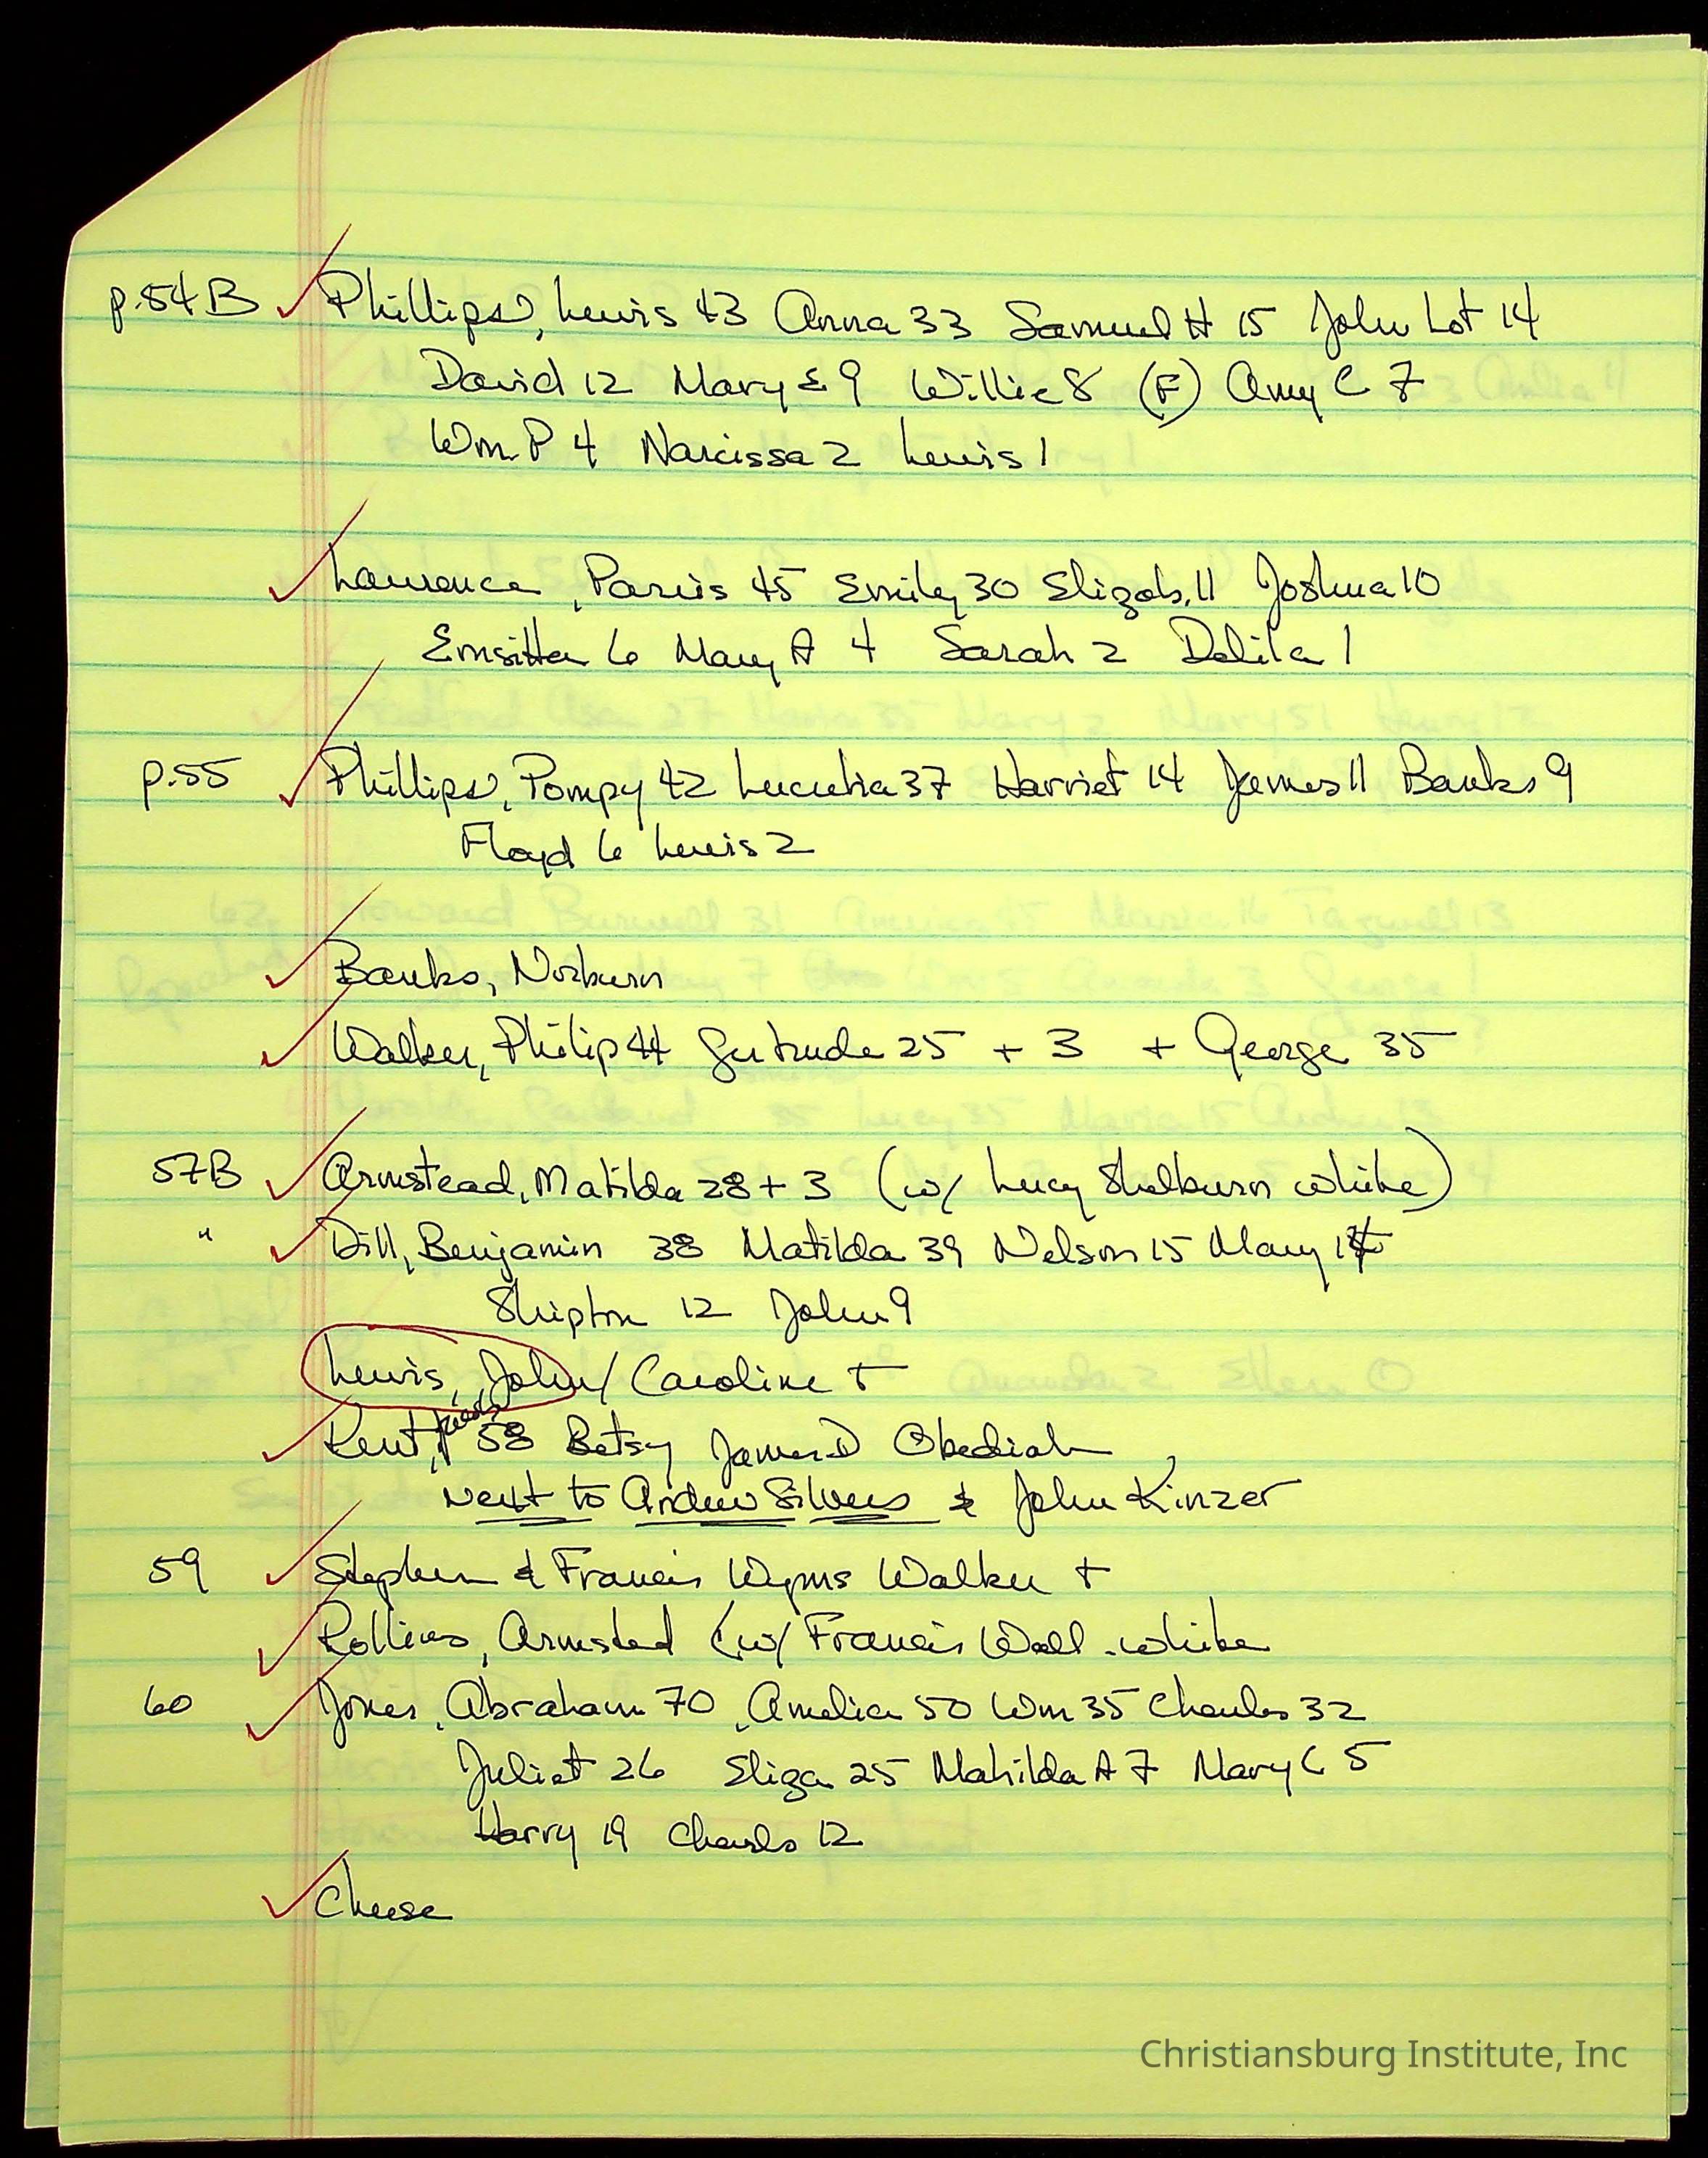 p.54B Phillips, Lewis 43 Anna 33 Samuel H 15 John Lot 14
David 12 Mary E 9 Willie 8 (F) Amy C 7
Wm. P 4 Narcissa 2 Lewis 1
Lawrence, Parris 45 Emily 30 Elizab. 11 Joshua 10
Emsitta 6 Mary A 4 Sarah 2 Delila 1
p.55 Phillips, Pompy 42 Lucretia 37 Harriet 14 James 11 Banks 9
Floyd 6 Lewis 2
Banks, Norburn
Walker, Philip 44 Gertrude 25 + 3 + George 35
57B Armstead, Matilda 28 + 3 (w/ Lucy Shelburn white)
" Dill, Benjamin 38 Matilda 39 Nelson 15 Mary 14
Shipton 12 John 9
Lewis, John / Caroline +
Kent, 58 Betsy James D Obediah
Next to Andrew Silvers & John Kinzer
59 Stephen & Francis Wyms Walker +
Rollins, Armsted (w/ Francis Wall - white
60 Jones, Abraham 70, Amelia 50 Wm 35 Charles 32
Juliet 26 Eliza 25 Matilda A 7 Mary C 5
Harry 19 Charles 12
Cheese
Christiansburg Institute, Inc